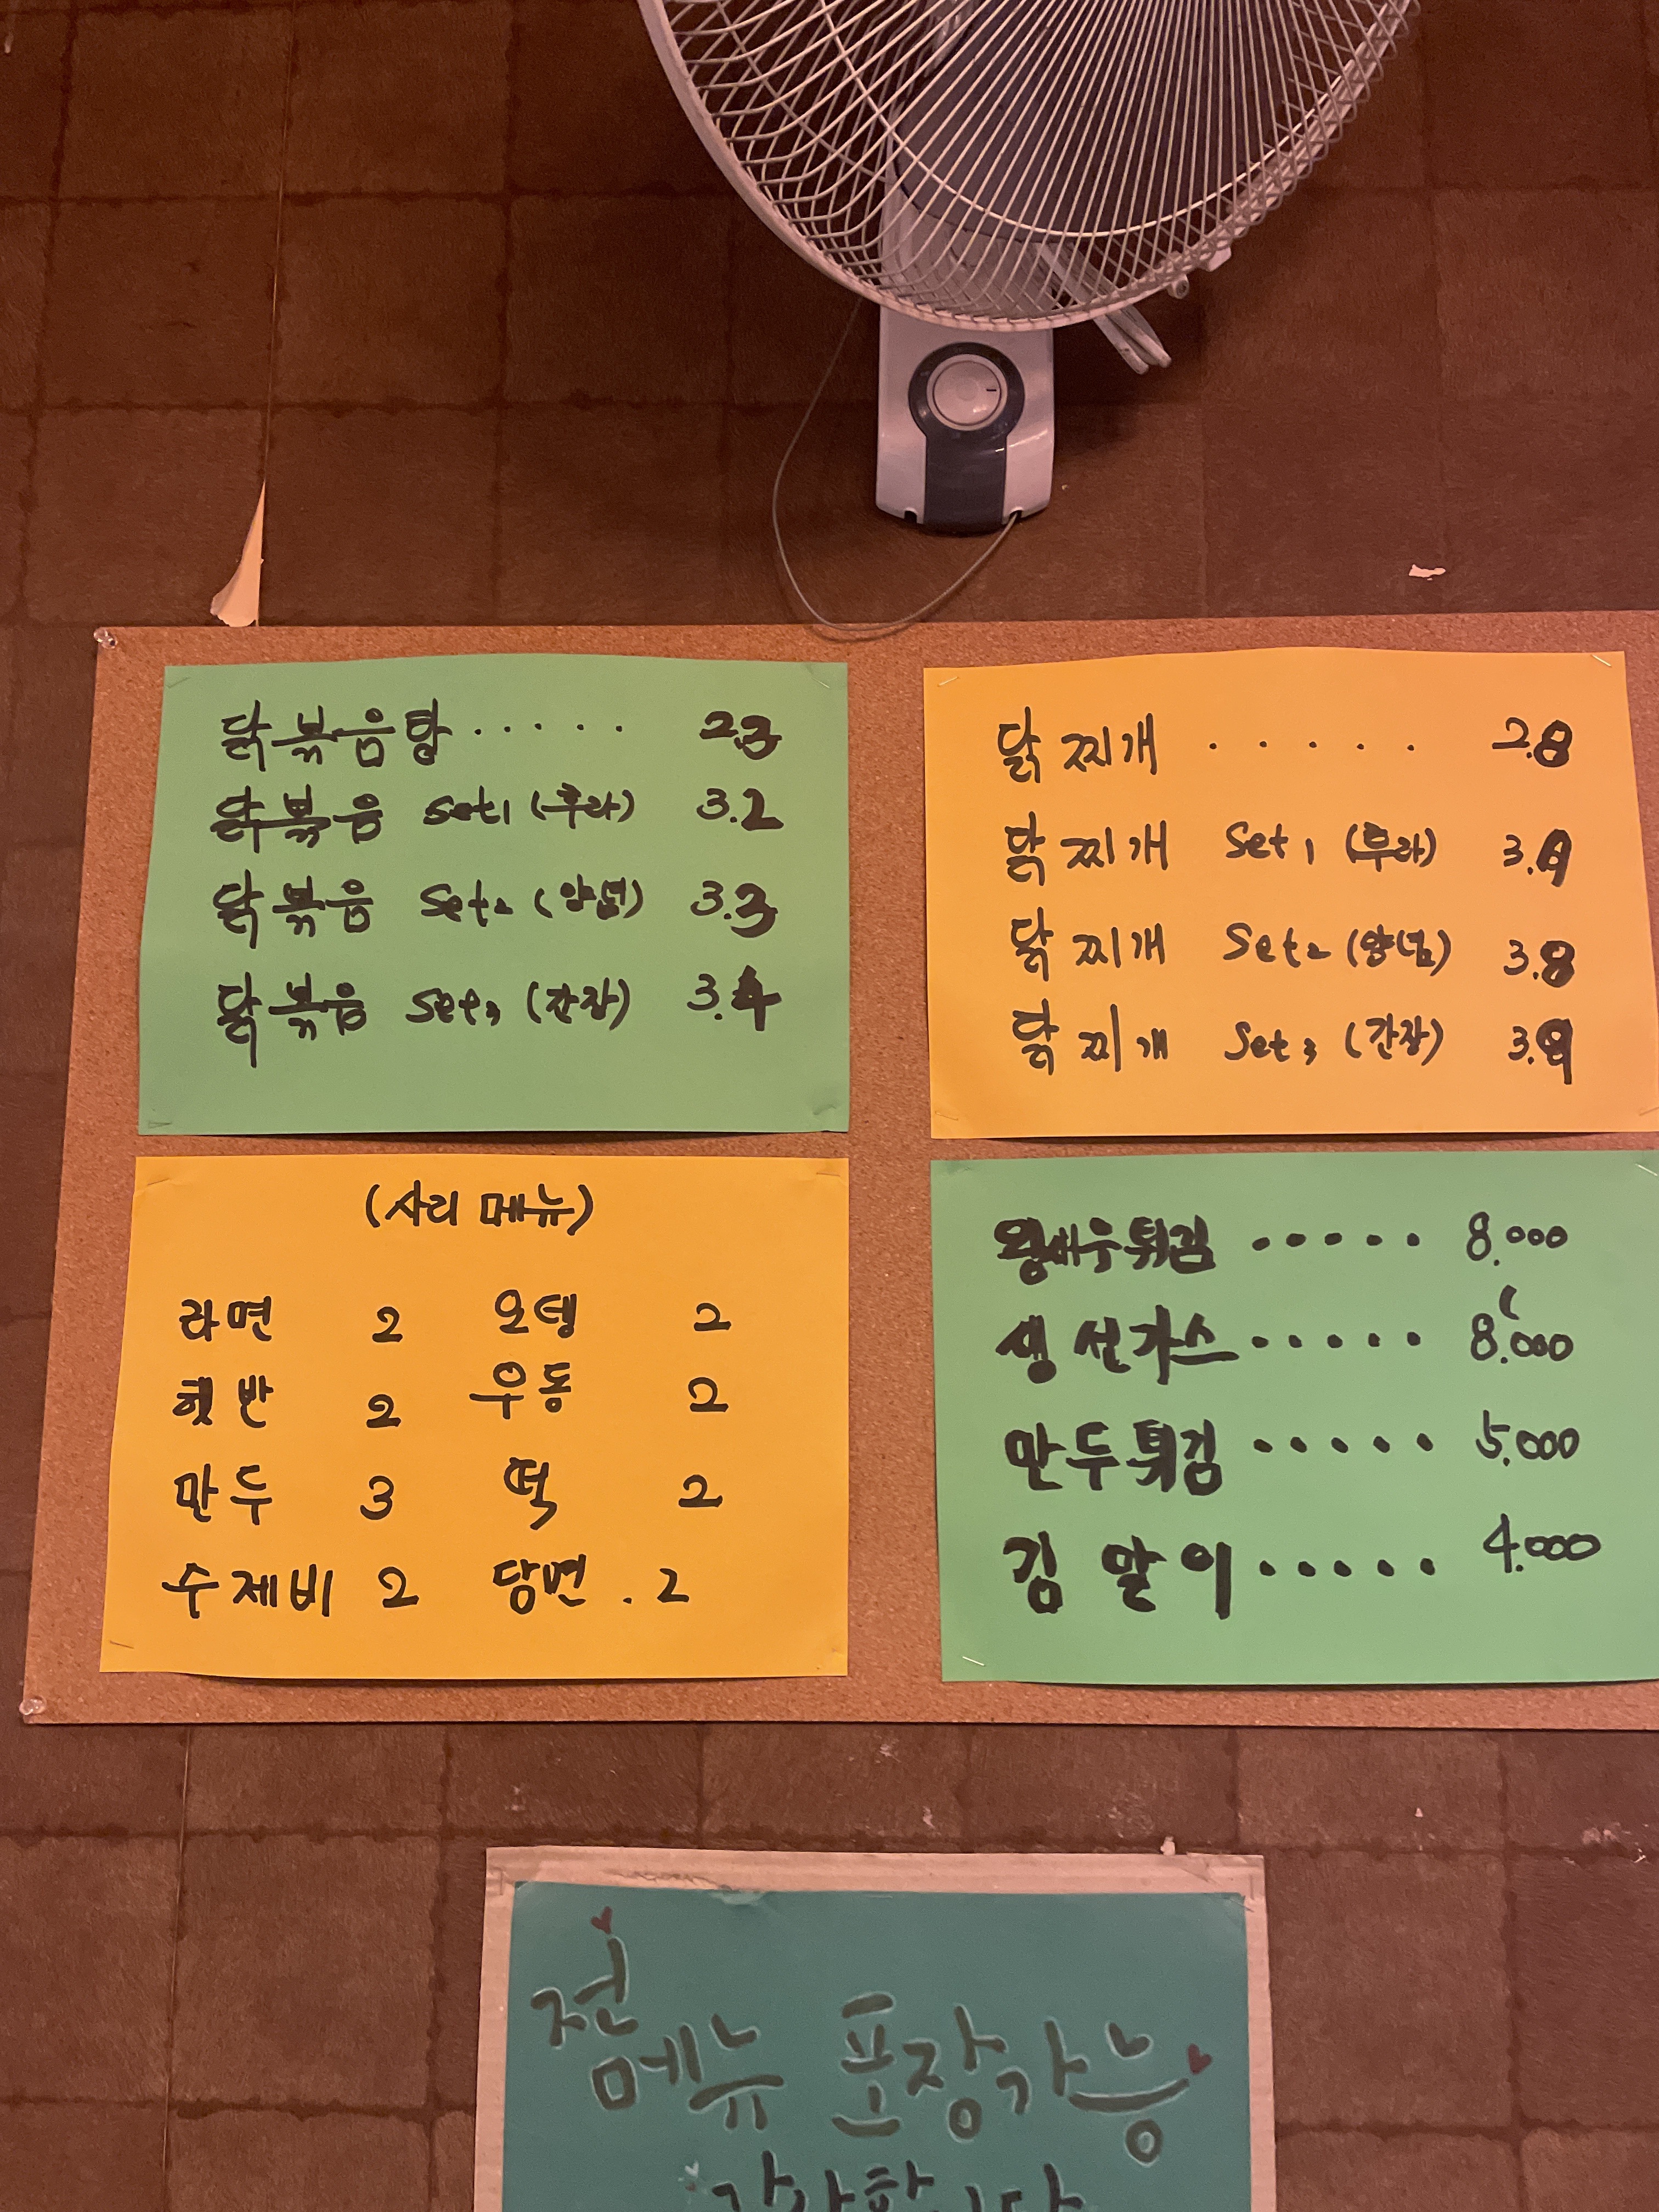 닭볶음탕 ..... 2.3
닭볶음 set1 (후라) 3.2
닭볶음 set2 (양념) 3.3
닭볶음 set3 (간장) 3.4
닭찌개 ..... 2.8
닭찌개 set1 (후라)
닭찌개 set2 (양념) 3.8
닭찌개 set3 (간장) 3.9
(사리 메뉴)
라면 2 오뎅 2
햇반 2 우동 2
만두 3 떡 2
수제비 2 당면 . 2
왕새우튀김 ..... 8.000
생선가스 ..... 8.000
만두튀김 ..... 5.000
김말이 ..... 4.000
전메뉴 포장가능
감사합니다